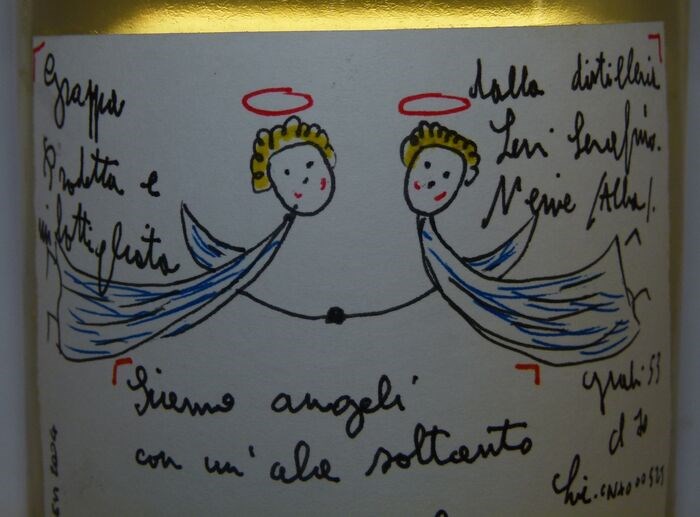 Grappa
Prodotta e
imbottigliata
dalla distilleria
Levi Serafino.
Neive /Alba/.
Siamo angeli
con un'ala soltanto
gradi 53
cl 70